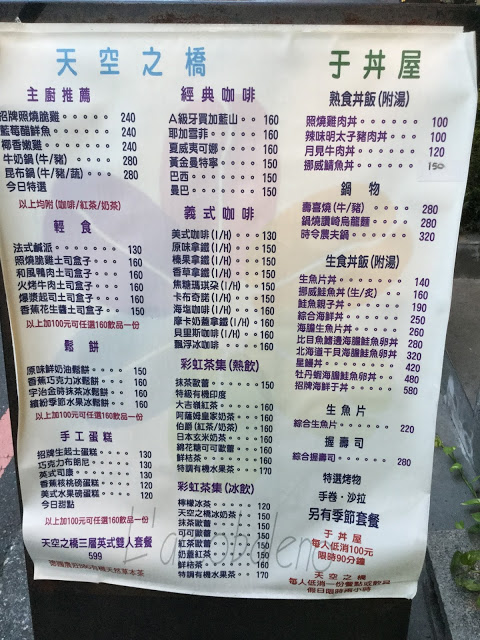 天空之橋
主廚推薦
招牌照燒脆雞•••• 240
藍莓醋鮮魚••••• 240
椰香嫩雞•••••• 240
牛奶鍋(牛/豬)•••• 280
昆布鍋(牛/豬/蔬)••• 280
今日特選
以上均附(咖啡/紅茶/奶茶)
輕食
法式鹹派•••••• 130
照燒脆雞土司盒子•• 160
和風鴨肉土司盒子•• 160
火烤牛肉土司盒子•• 160
爆漿起司土司盒子•• 160
香蕉花生醬土司盒子•• 150
以上加100元可任選160飲品一份
鬆餅
原味鮮奶油鬆餅••• 150
香蕉巧克力冰鬆餅•• 160
宇治金時抹茶冰鬆餅•• 160
繽紛季節水果冰鬆餅•• 160
以上加100元可任選160飲品一份
手工蛋糕
招牌生起士蛋糕••• 130
巧克力布朗尼•••• 130
英式司康••••• 130
香蕉核桃磅蛋糕••• 120
美式水果磅蛋糕••• 120
今日甜點
以上加100元可任選160飲品一份
天空之橋三層英式雙人套餐
599
經典咖啡
A級牙買加藍山•• 160
耶加雪菲•••• 160
夏威夷可娜••• 160
黃金曼特寧••• 150
巴西••••• 160
曼巴••••• 160
義式咖啡
美式咖啡(I/H)•• 130
原味拿鐵(I/H)•• 150
榛果拿鐵(I/H)•• 160
香草拿鐵(I/H)•• 160
焦糖瑪琪朵(I/H)• 160
卡布奇諾(I/H)•• 150
海塩咖啡(I/H)•• 160
摩卡奶蓋拿鐵(I/H) 160
貝里斯咖啡(I/H)• 160
飄浮冰咖啡••• 160
彩虹茶集(熱飲)
抹茶歐蕾•••• 150
特級有機印度
大吉嶺紅茶••• 160
阿薩姆皇家奶茶•• 160
伯爵(紅茶/奶茶)• 160
日本玄米奶茶•• 160
綿花糖可可歐蕾•• 160
鮮桔茶••••• 160
特調有機水果茶•• 170
彩虹茶集(冰飲)
檸檬冰茶•••• 120
天空之橋冰奶茶•• 150
抹茶歐蕾•••• 150
可可歐蕾•••• 150
紅茶歐蕾•••• 150
奶蓋紅茶•••• 150
鮮桔茶••••• 160
特調有機水果茶•• 170
于丼屋
熟食丼飯(附湯)
照燒雞肉丼•••••• 100
辣味明太子豬肉丼•••• 100
月見牛肉丼•••••• 120
挪威鯖魚丼•••••• 150
鍋物
壽喜燒(牛/豬)••••• 280
鍋燒讚崎烏龍麵•••• 280
時令農夫鍋•••••• 320
生食丼飯(附湯)
生魚片丼•••••• 140
挪威鮭魚丼(生/炙)••• 160
鮭魚親子丼••••• 190
綜合海鮮丼••••• 250
海膽生魚片丼•••• 260
比目魚鰭邊海膽鮭魚卵丼 280
北海道干貝海膽鮭魚卵丼 320
星鰻丼••••••• 420
牡丹蝦海膽鮭魚卵丼•• 480
招牌海鮮于丼•••• 580
生魚片
綜合生魚片••••• 220
握壽司
綜合握壽司••••• 280
特選烤物
手卷、沙拉
另有季節套餐
于丼屋
每人低消100元
限時90分鐘
天空之橋
每人低消一份餐點或飲品
假日限時兩小時